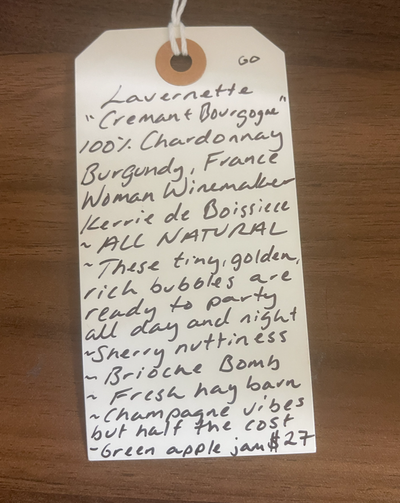 GO
Lavernette
"Cremant Bourgogne"
100% Chardonnay
Burgundy, France
Woman Winemaker
Kerrie de Boissieu
~ ALL NATURAL
~These tiny, golden,
rich bubbles are
ready to party
all day and night
~Sherry nuttiness
~ Brioche Bomb
~ Fresh hay barn
~Champagne vibes
but half the cost
~Green apple jam $27